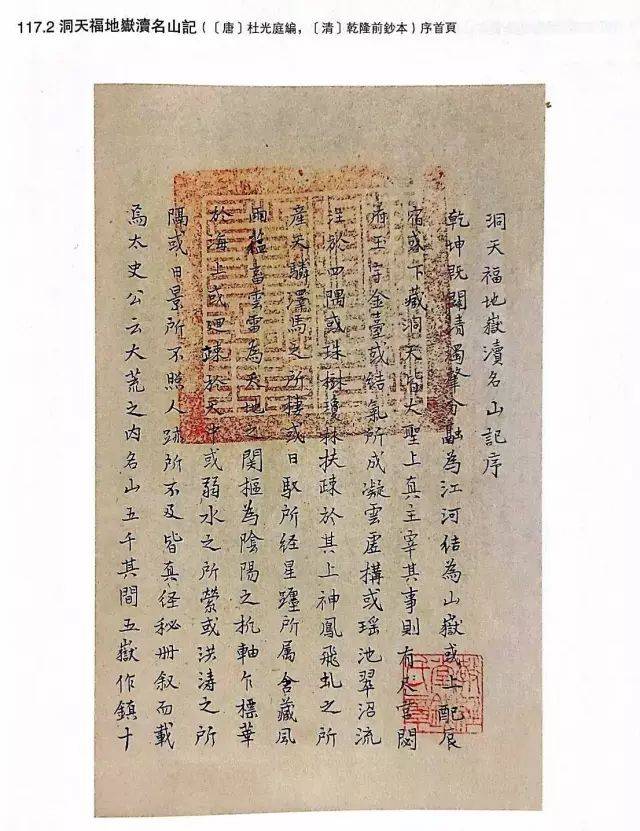 117.2 洞天福地嶽瀆名山記（〔唐〕杜光庭編，〔清〕乾隆前鈔本）序首頁
洞天福地嶽瀆名山記序
乾坤既闢清濁肇分融為江河結為山嶽或上配辰
宿或下藏洞天皆大聖上真主宰其事則有 宮閟
府玉宇金臺或結氣所成凝雲虛搆或瑤池翠沼流
注於四隅或珠樹瓊林扶疎於其上神鳳飛虬之所
產天驎澤馬之所棲或日馭所経星躔所属含藏風
雨蕴畜雲雷為天地之関樞為陰陽之机軸乍標華
於海上或迴疎於天中或弱水之所縈或洪涛之所
隔或日景所不照人跡所不及皆真経秘册叙而載
焉太史公云大荒之内名山五千其間五嶽作鎮十